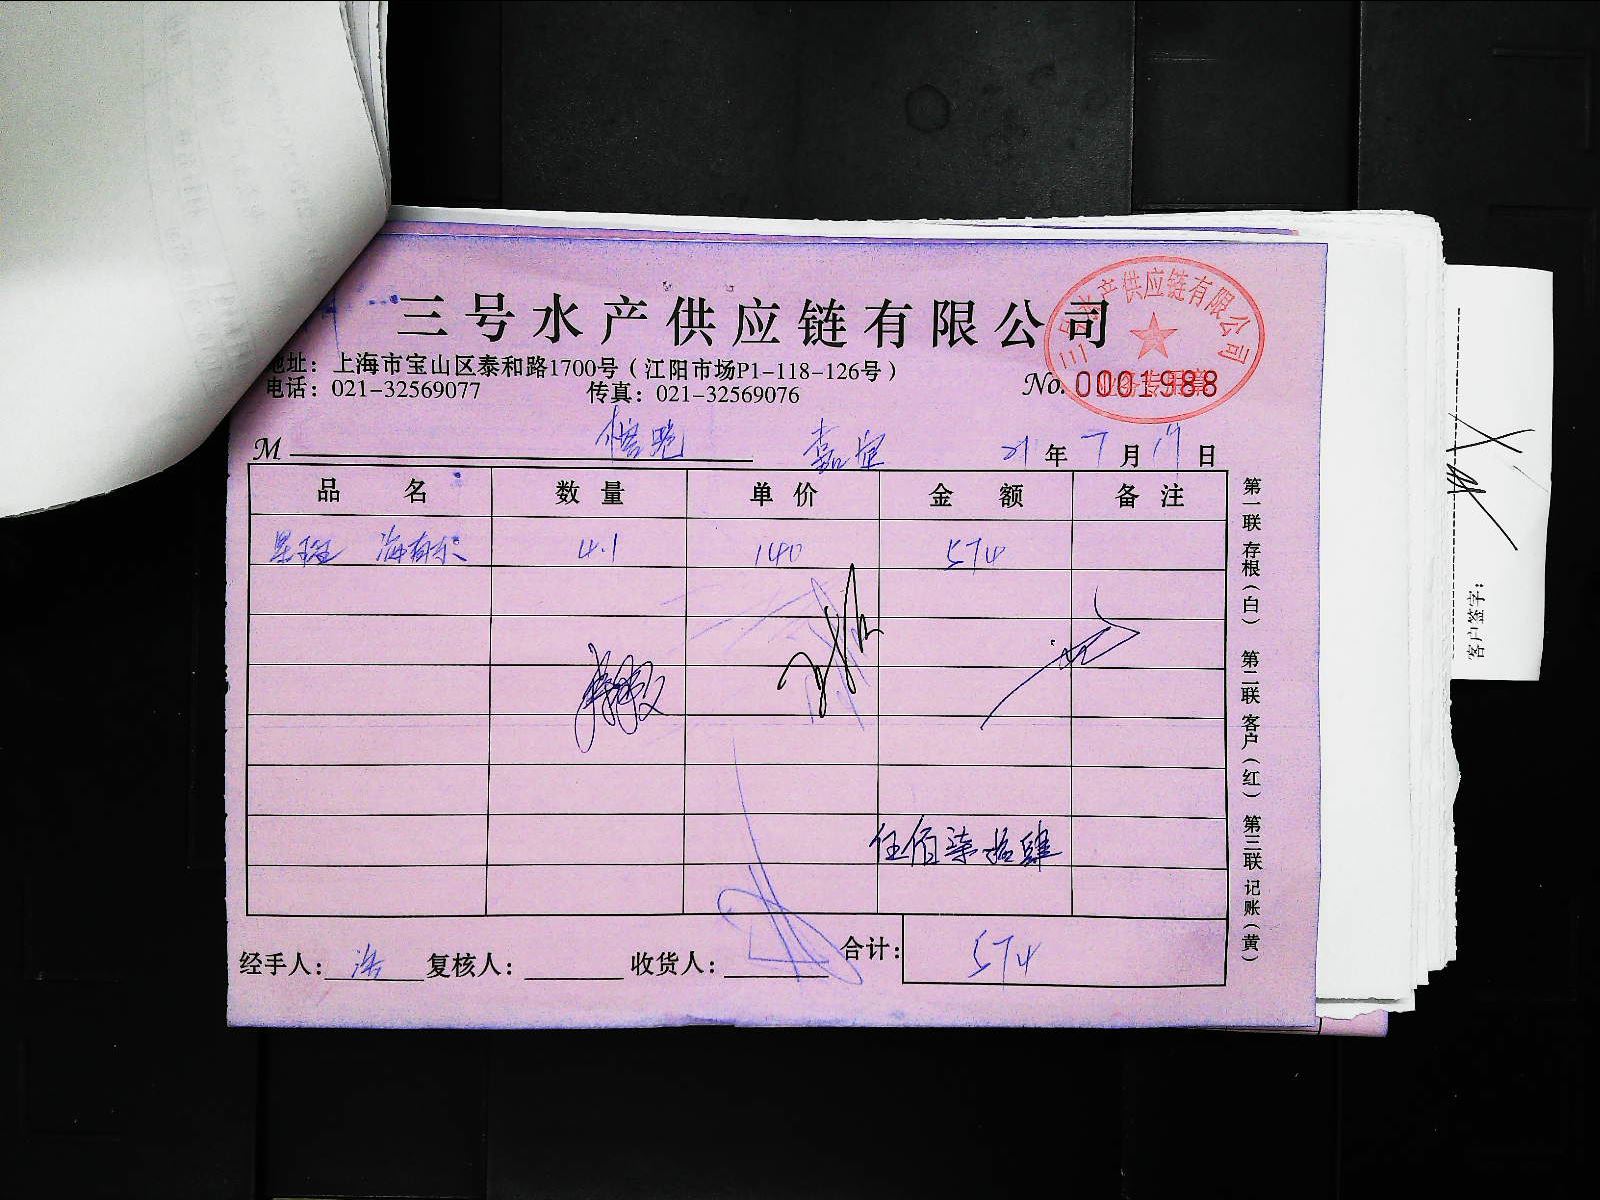 三号水产供应链有限公司
地址：上海市宝山区泰和路1700号（江阳市场P1-118-126号）
电话：021-32569077 传真：021-32569076
No. 0001988
三号水产供应链有限公司
业务专用章
M 嘉定 21年7月19日
品名 数量 单价 金额 备注
星斑 4.1 140 574
伍佰柒拾肆
经手人： 复核人： 收货人： 合计： 574
第一联存根（白） 第二联客户（红） 第三联记账（黄）
客户签字：